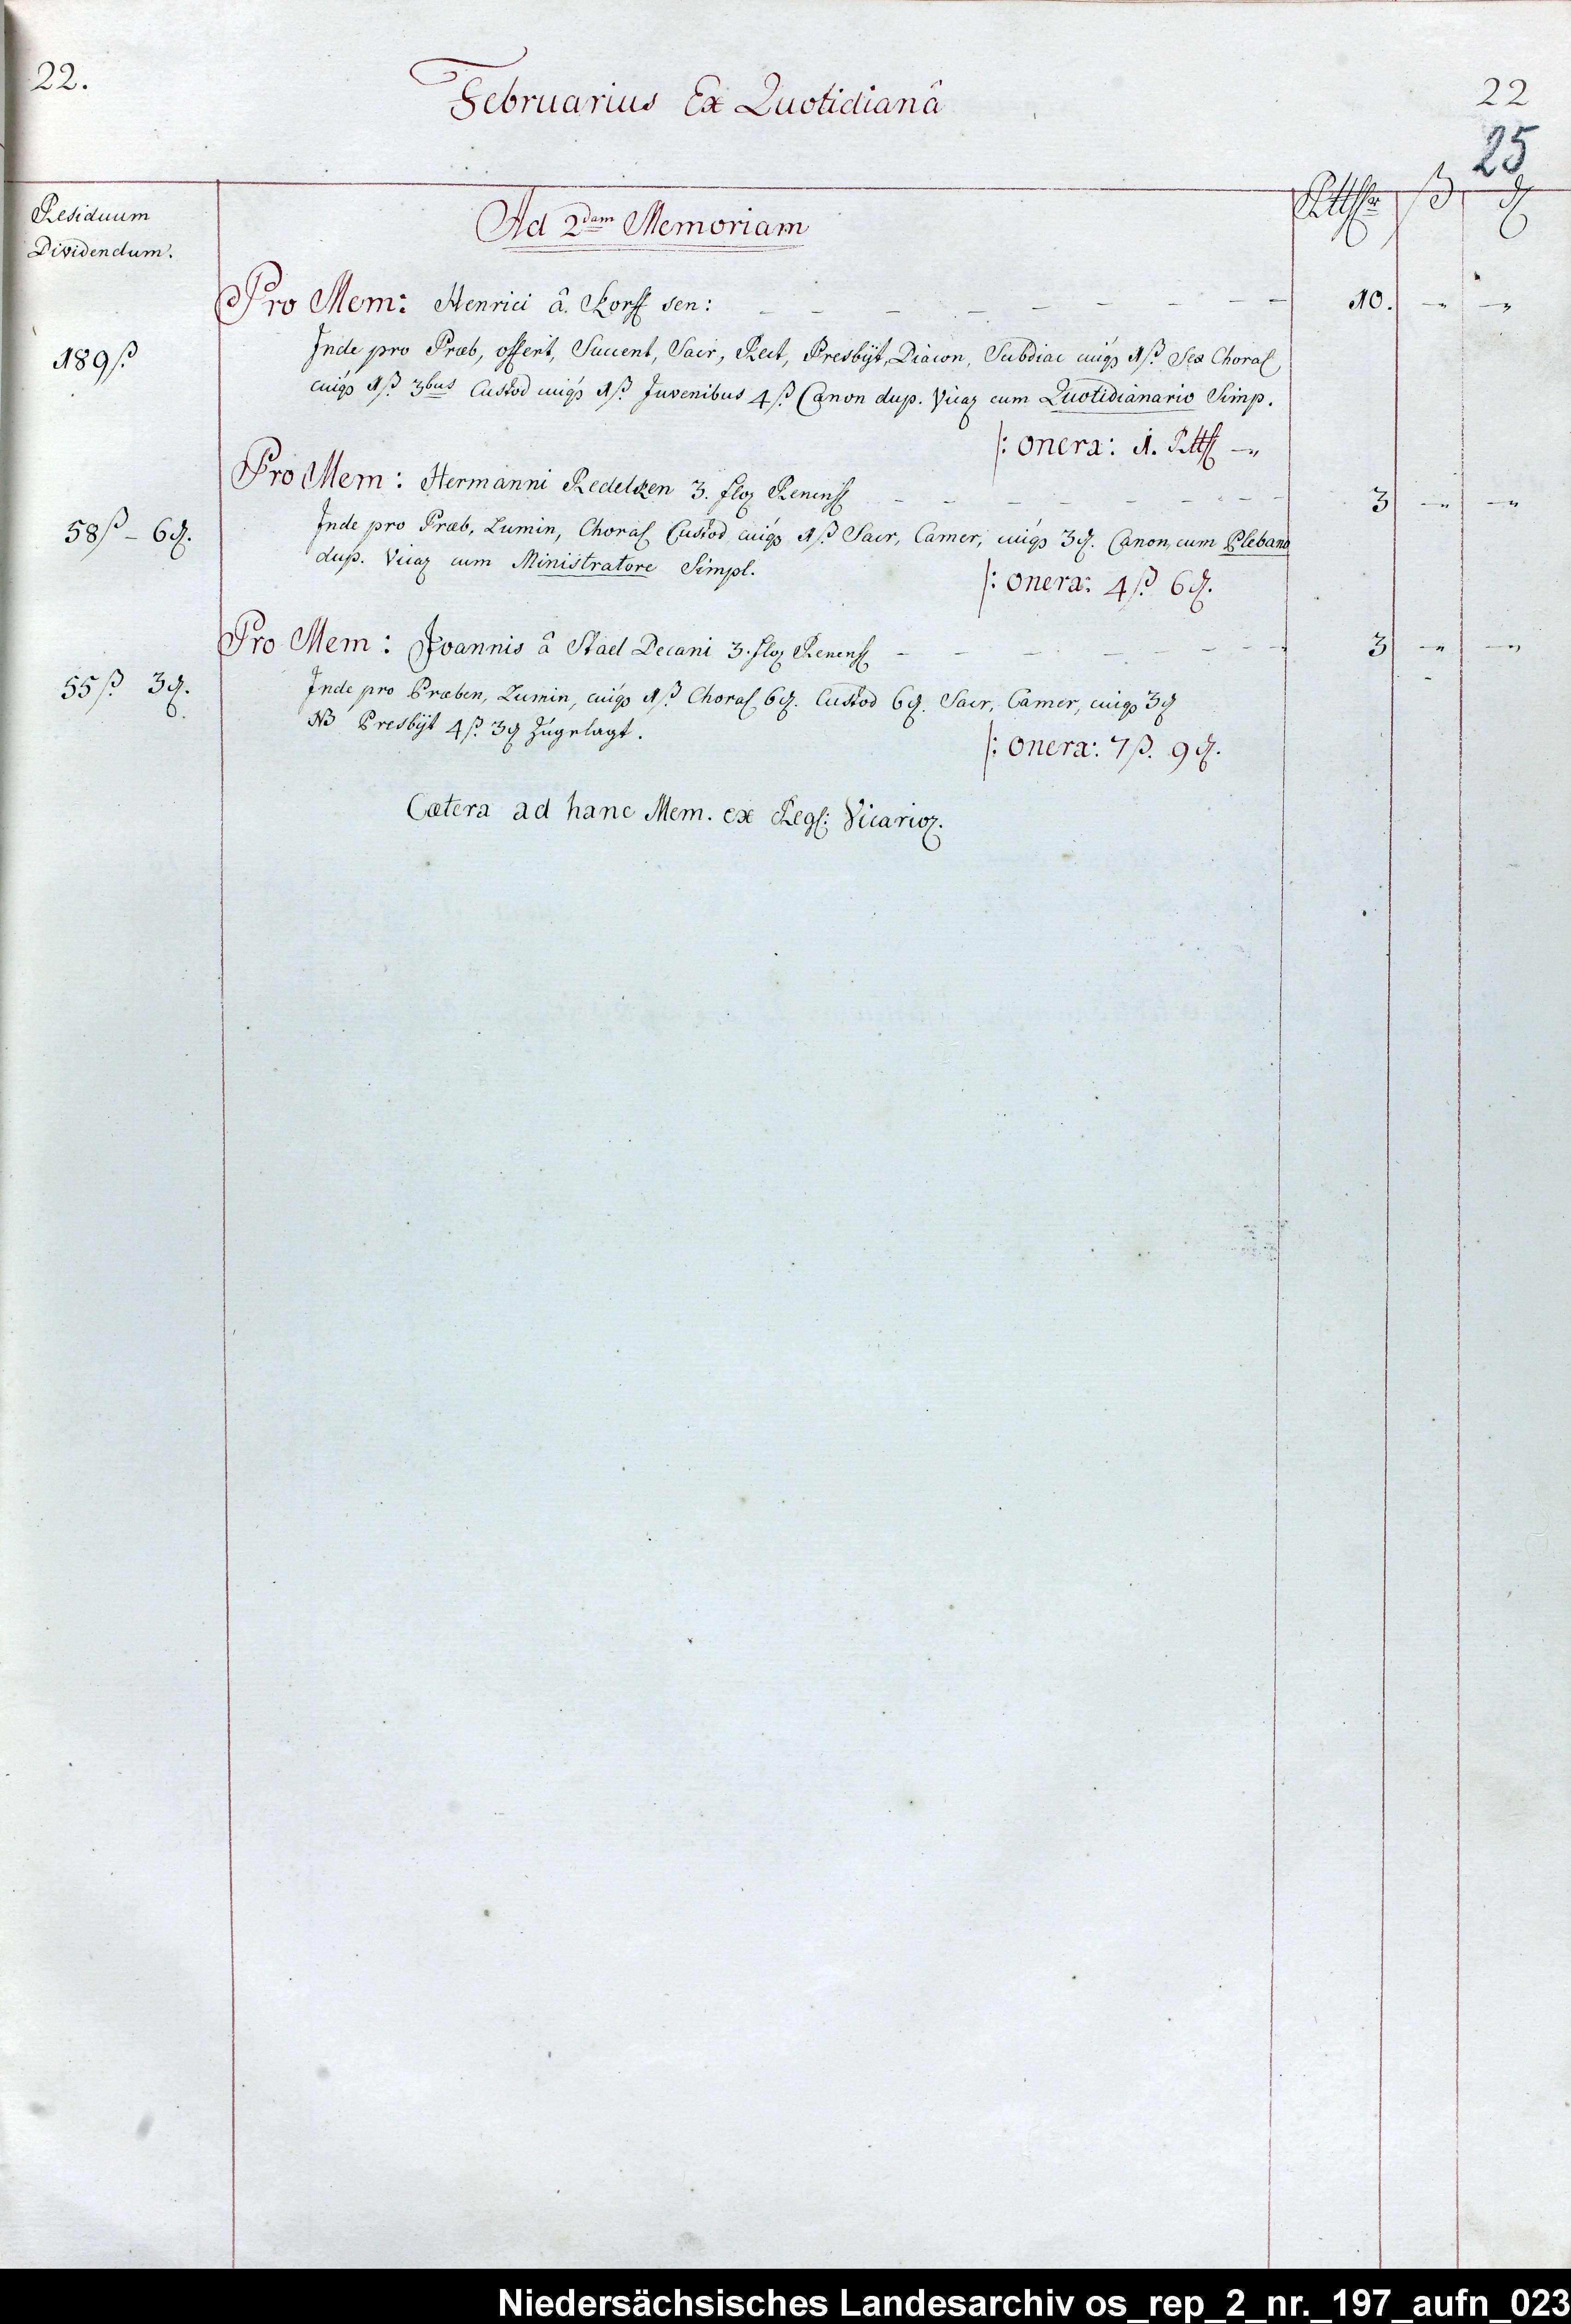 22.
Februarius Ex Quotidianâ
22
25
Residuum
Dividendum.
Ad 2dam Memoriam
Rttlr ß ₰
Pro Mem: Henrici â Korff sen: — — — — — — — — — 10. —„ —„
Inde pro Præb, offert, Succent, Sacr, Rect, Presbÿt, Diacon, Subdiac cuiqs 1 ß Sex Choral
189 ß
cuiqs 1 ß 3bus Custod cuiqs 1 ß Juvenibus 4 ß Canon dup. Vicar cum Quotidianario Simp.
/: onera: 1. Rttl —„
Pro Mem: Hermanni Redelken 3. flor Renens — — — — — — — — 3 —„ —„
Inde pro Præb, Lumin, Choral Custod cuiqs 1 ß Sacr, Camer, cuiqs 3 ₰. Canon, cum Plebano
58 ß – 6 ₰.
dup. Vicar cum Ministratore Simpl.
/: onera: 4 ß 6 ₰.
Pro Mem: Joannis â Stael Decani 3. flor Renens — — — — — — — — 3 —„ —„
Inde pro Præben, Lumin, cuiqs 1 ß Choral 6 ₰. Custod 6 ₰. Sacr, Camer, cuiqs 3 ₰
55 ß 3 ₰.
NB Presbÿt 4 ß 3 ₰ Zugelagt.
/: onera: 7 ß. 9 ₰.
Cætera ad hanc Mem. ex Regs: Vicarior.
Niedersächsisches Landesarchiv os_rep_2_nr._197_aufn_023